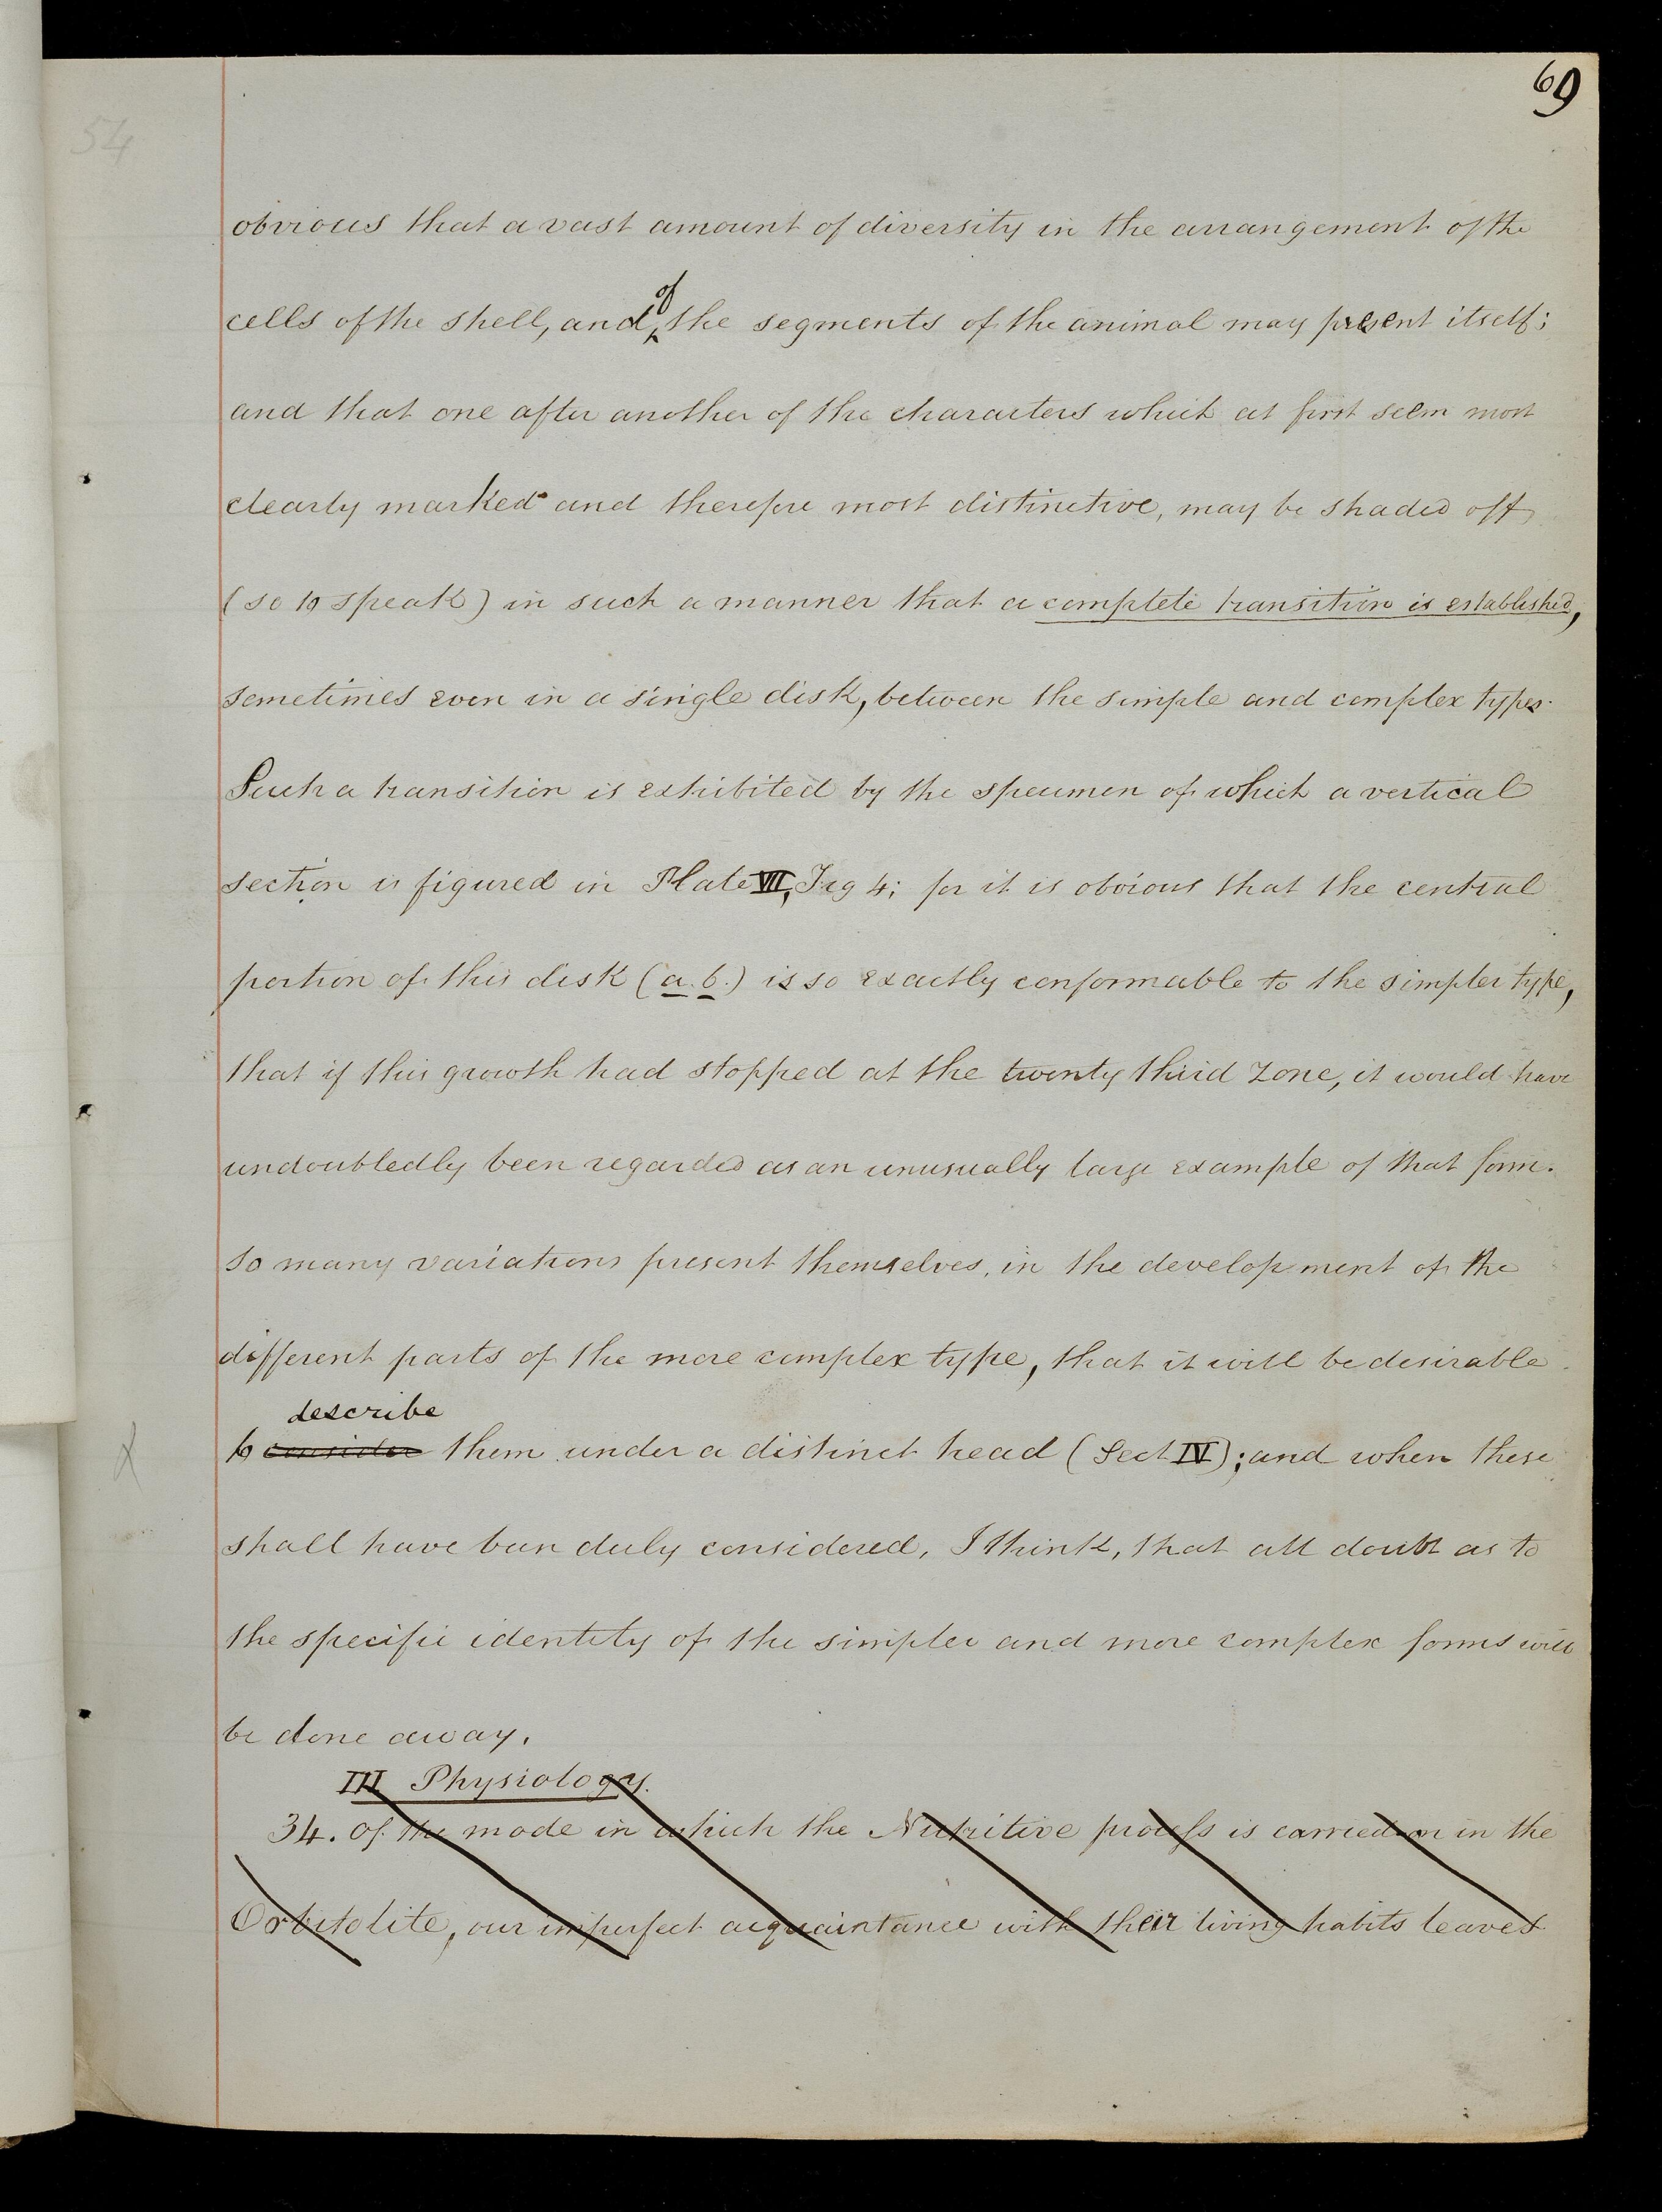 69
54
obvious that a vast amount of diversity in the arrangement of the
of
cells of the shell, and the segments of the animal may present itself;
and that one after another of the characters which at first seem most
clearly marked and therefore most distinctive, may be shaded off
(so to speak) in such a manner that a complete transition is established,
sometimes even in a single disk, between the simple and complex types.
Such a transition is exhibited by the specimen of which a vertical
section is figured in Plate VII, Fig 4; for it is obvious that the central
portion of this disk (a. b.) is so exactly conformable to the simpler type,
that if this growth had stopped at the twenty third zone, it would have
undoubtedly been regarded as an unusually large example of that form.
So many variations present themselves, in the development of the
different parts of the more complex type, that it will be desirable
describe
to consider them under a distinct head (Sect IV); and when these
shall have been duly considered, I think, that all doubt as to
the specific identity of the simpler and more complex forms will
be done away.
III Physiology.
34. Of the mode in which the Nutritive process is carried on in the
Orbitolite, our imperfect acquaintance with their living habits leaves